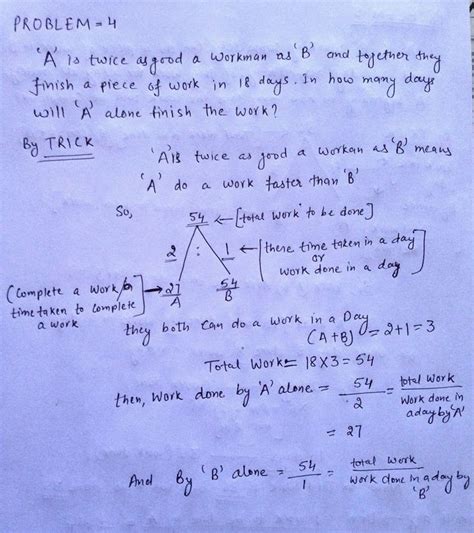 PROBLEM = 4
'A' is twice as good a workman as 'B' and together they
finish a piece of work in 18 days. In how many days
will 'A' alone finish the work?
By TRICK
'A' is twice as good a workan as 'B' means
'A' do a work faster than 'B'
So,
54 ← [total work to be done]
2 : 1 ← [there time taken in a day
or
work done in a day]
(Complete a work/
time taken to complete
a work] → 27 54
A B
they both can do a work in a Day
(A+B) = 2+1 = 3
Total Work = 18x3 = 54
then, work done by 'A' alone = 54/2 = total work/work done in a day by 'A'
= 27
And By 'B' alone = 54/1 = total work/work done in a day by 'B'